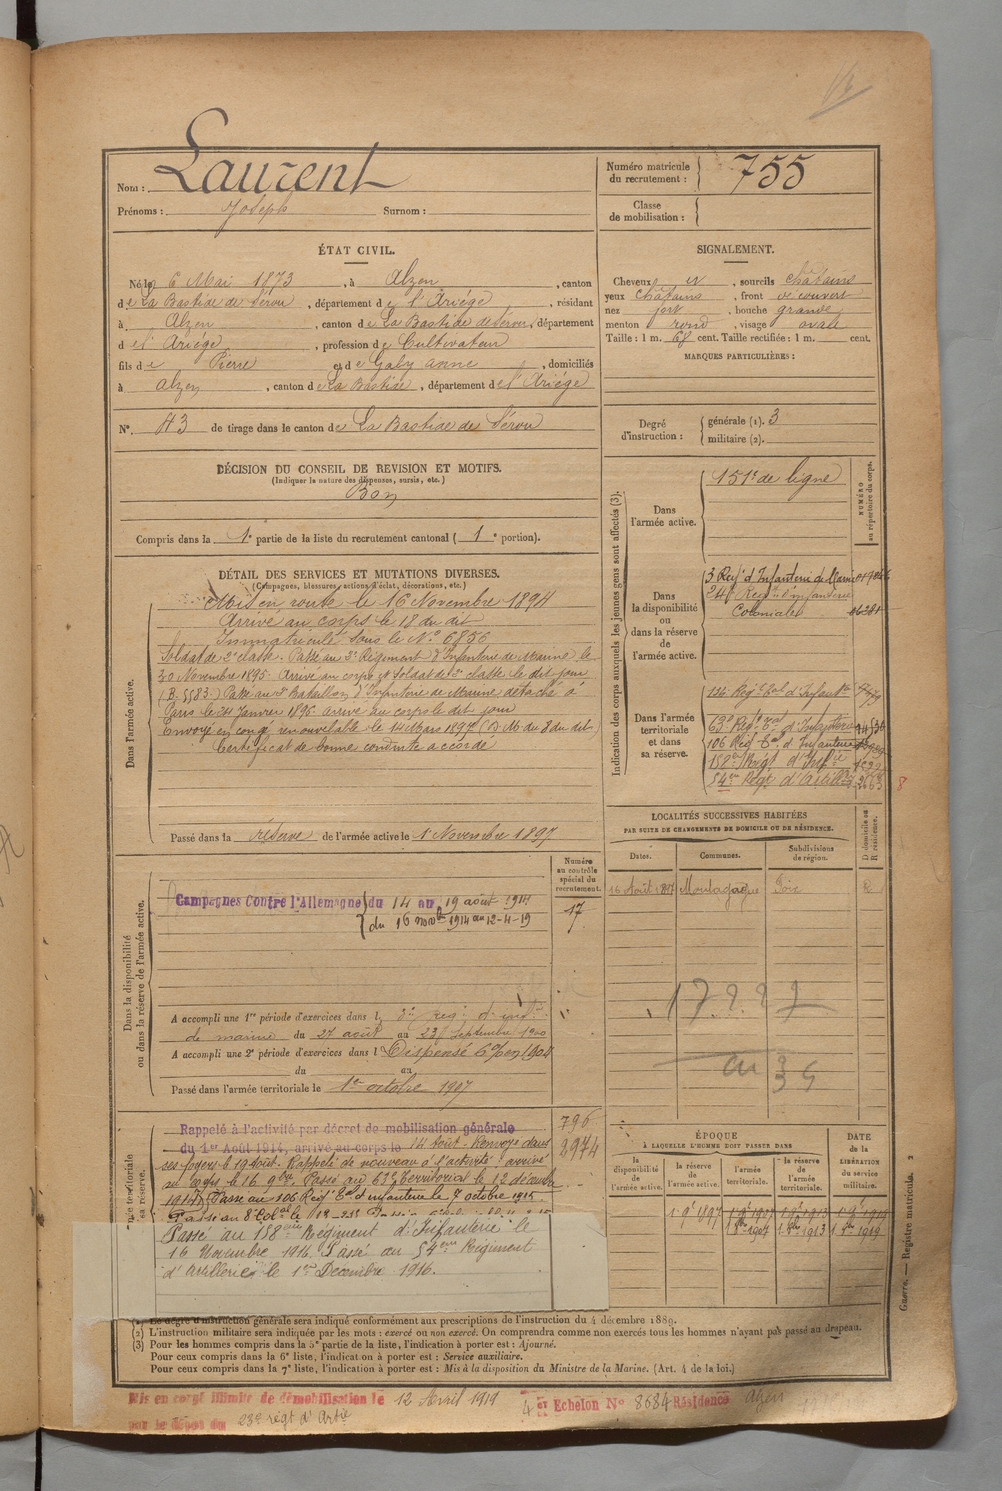 Nom : Laurent
Prénoms : Joseph Surnom :
Numéro matricule du recrutement : 755
Classe de mobilisation :
ÉTAT CIVIL.
Né le 6 Mai 1873, à Alzen, canton
de La Bastide de Sérou, département de l'Ariège, résidant
à Alzen, canton de La Bastide de Sérou, département
de l'Ariège, profession de Cultivateur
fils de Pierre et de Galy anne, domiciliés
à Alzen, canton de La Bastide, département de l'Ariège
N° 43 de tirage dans le canton de La Bastide de Sérou
SIGNALEMENT.
Cheveux et, sourcils châtains
yeux châtains, front découvert
nez fort, bouche grande
menton rond, visage ovale
Taille : 1 m. 67 cent. Taille rectifiée : 1 m. cent.
MARQUES PARTICULIÈRES :
Degré d'instruction : générale (1). 3
militaire (2).
DÉCISION DU CONSEIL DE REVISION ET MOTIFS.
(Indiquer la nature des dispenses, sursis, etc.)
Bon
Compris dans la 1e partie de la liste du recrutement cantonal ( 1e portion).
DÉTAIL DES SERVICES ET MUTATIONS DIVERSES.
(Campagnes, blessures, actions d'éclat, décorations, etc.)
Dans l'armée active.
Mis en route le 16 Novembre 1894
Arrivé au corps le 18 du dit
Immatriculé sous le N° 6856
Soldat de 2e classe. Passé au 3e Régiment d'Infanterie de Marine le
30 Novembre 1895. Arrivé au corps et Soldat de 2e classe le dit jour
(B. 5583) Passé au Bataillon d'Infanterie de Marine détaché à
Paris le 24 Janvier 1896 arrivé au corps le dit jour
Envoyé en congé renouvelable le 14 Mars 1897 (D. M. du 8 du dit)
Certificat de bonne conduite accordé
Passé dans la réserve de l'armée active le 1 Novembre 1897
Indication des corps auxquels les jeunes gens sont affectés (3).
NUMÉRO au répertoire du corps.
Dans l'armée active.
151e de ligne
Dans la disponibilité ou dans la réserve de l'armée active.
3 Regt d'Infanterie de Marine
24e Regt d'infanterie
Coloniale
Dans l'armée territoriale et dans sa réserve.
134 Regt Eal d'Infantie
63e Regt Eal d'Infanterie
106 Regt Eal d'Infanterie
158e Régt d'Infie
54e Régt d'Artillie
8
LOCALITÉS SUCCESSIVES HABITÉES
PAR SUITE DE CHANGEMENTS DE DOMICILE OU DE RÉSIDENCE.
Dates. Communes. Subdivisions de région. D domicile ou R résidence.
16 Août 1897 Montagagne Foix R
Dans la disponibilité ou dans la réserve de l'armée active.
Numéro au contrôle spécial du recrutement.
Campagnes Contre l'Allemagne du 14 au 19 août 1914
du 16 novb 1914 au 12-4-19
17
A accompli une 1re période d'exercices dans le 3e reg. d'inf.
de marine du 27 août au 23 Septembre 1900
A accompli une 2e période d'exercices dans l Dispensé
du au
Passé dans l'armée territoriale le 1er octobre 1907
au 34
796
2974
Rappelé à l'activité par décret de mobilisation générale
du 1er Août 1914, arrivé au corps le 14 Août. Renvoyé dans
ses foyers le 19 août. Rappelé de nouveau à l'activité arrivé
au corps le 16 9bre. Passé au 63e Territorial le 12 décembre
1914. Passé au 106 Regt Eal d'Infanterie le 7 octobre 1915
Passé au 158eme Régiment d'Infanterie le
16 Novembre 1916. Passé au 54eme Régiment
d'Artillerie le 1er Decembre 1916.
ÉPOQUE
À LAQUELLE L'HOMME DOIT PASSER DANS
la disponibilité de l'armée active. la réserve de l'armée active. l'armée territoriale. la réserve de l'armée territoriale.
DATE de la LIBÉRATION du service militaire.
(1) Le degré d'instruction générale sera indiqué conformément aux prescriptions de l'instruction du 4 décembre 1889.
(2) L'instruction militaire sera indiquée par les mots : exercé ou non exercé. On comprendra comme non exercés tous les hommes n'ayant pas passé au drapeau.
(3) Pour les hommes compris dans la 5e partie de la liste, l'indication à porter est : Ajourné.
Pour ceux compris dans la 6e liste, l'indication à porter est : Service auxiliaire.
Pour ceux compris dans la 7e liste, l'indication à porter est : Mis à la disposition du Ministre de la Marine. (Art. 4 de la loi.)
Guerre. — Registre matricule. 2
Mis en congé illimité de démobilisation le 12 Avril 1919 4e Echelon N° 8684 Résidence Alzen
par le dépôt du 23e régt d'Artie